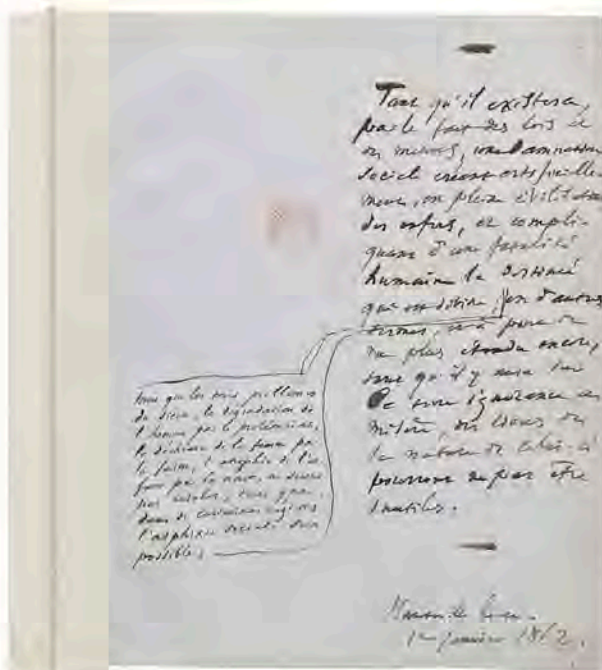 Tant qu'il existera,
par le fait des lois et
des mœurs, une damnation
sociale créant artificielle-
ment, en pleine civilisation
des enfers, et compli-
quant d'une fatalité
humaine la destinée
qui est divine, en d'autres
termes, et à point de
vue plus étendu encore,
tant qu'il y aura sur
la terre ignorance et
misère, des livres de
la nature de celui-ci
pourront ne pas être
inutiles.
tant que les trois problèmes
du siècle, la dégradation de
l'homme par le prolétariat,
la déchéance de la femme par
la faim, l'atrophie de l'en-
fant par la nuit, ne seront
pas résolus, tant que,
dans de certaines régions
l'asphyxie sociale sera
possible,
1er janvier 1862.